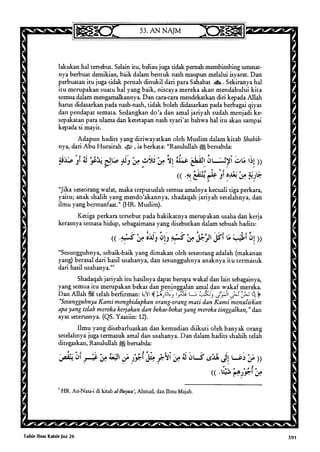 53. AN NAJM
lakukan hal tersebut. Selain itu, beliau juga tidak pernah membimbing ummat-
nya berbuat demikian, baik dalam bentuk nash maupun melalui isyarat. Dan
perbuatan itu juga tidak pernah dinukil dari para Sahabat. Sekiranya hal
itu merupakan suatu hal yang baik, niscaya mereka akan mendahului kita
semua dalam mengamalkannya. Dan cara-cara mendekatkan diri kepada Allah
harus didasarkan pada nash-nash, tidak boleh didasarkan pada berbagai qiyas
dan pendapat semata. Sedangkan do'a dan amal jariyah sudah menjadi ke-
sepakatan para ulama dan ketetapan nash syari'at bahwa hal itu akan sampai
kepada si mayit.
Adapun hadits yang diriwayatkan oleh Muslim dalam kitab Shahih-
nya, dari Abu Hurairah, ia berkata: "Rasulullah ﷺ bersabda:
(( إذا مات الإنسان انقطع عمله إلا من ثلاث: من ولد صالح يدعو له أو صدقة
جارية من بعده أو علم ينتفع به. ))
"Jika seseorang wafat, maka terputuslah semua amalnya kecuali tiga perkara,
yaitu; anak shalih yang mendo'akannya, shadaqah jariyah setelahnya, dan
ilmu yang bermanfaat." (HR. Muslim).
Ketiga perkara tersebut pada hakikatnya merupakan usaha dan kerja
kerasnya semasa hidup, sebagaimana yang disebutkan dalam sebuah hadits:
(( إن أطيب ما أكل الرجل من كسبه وإن ولده من كسبه. ))
"Sesungguhnya, sebaik-baik yang dimakan oleh seseorang adalah (makanan
yang) berasal dari hasil usahanya, dan sesungguhnya anaknya itu termasuk
dari hasil usahanya."
Shadaqah jariyah itu hasilnya dapat berupa wakaf dan lain sebagainya,
yang semua itu merupakan bekas dan peninggalan amal dan wakaf mereka.
Dan Allah ﷻ telah berfirman:
"Sesungguhnya Kami menghidupkan orang-orang mati dan Kami menuliskan
apa yang telah mereka kerjakan dan bekas-bekas yang mereka tinggalkan," dan
ayat seterusnya. (QS. Yaasiin: 12).
Ilmu yang disebarluaskan dan kemudian diikuti oleh banyak orang
setelahnya juga termasuk amal dan usahanya. Dan dalam hadits shahih telah
ditegaskan, Rasulullah ﷺ bersabda:
(( من دعا إلى هدى كان له من الأجر مثل أجور من اتبعه من غير أن ينقص
من أجورهم شيئا. ))
HR. An-Nasa-i di kitab al-Buyuu', Ahmad, dan Ibnu Majah.
Tafsir Ibnu Katsir Juz 26
591